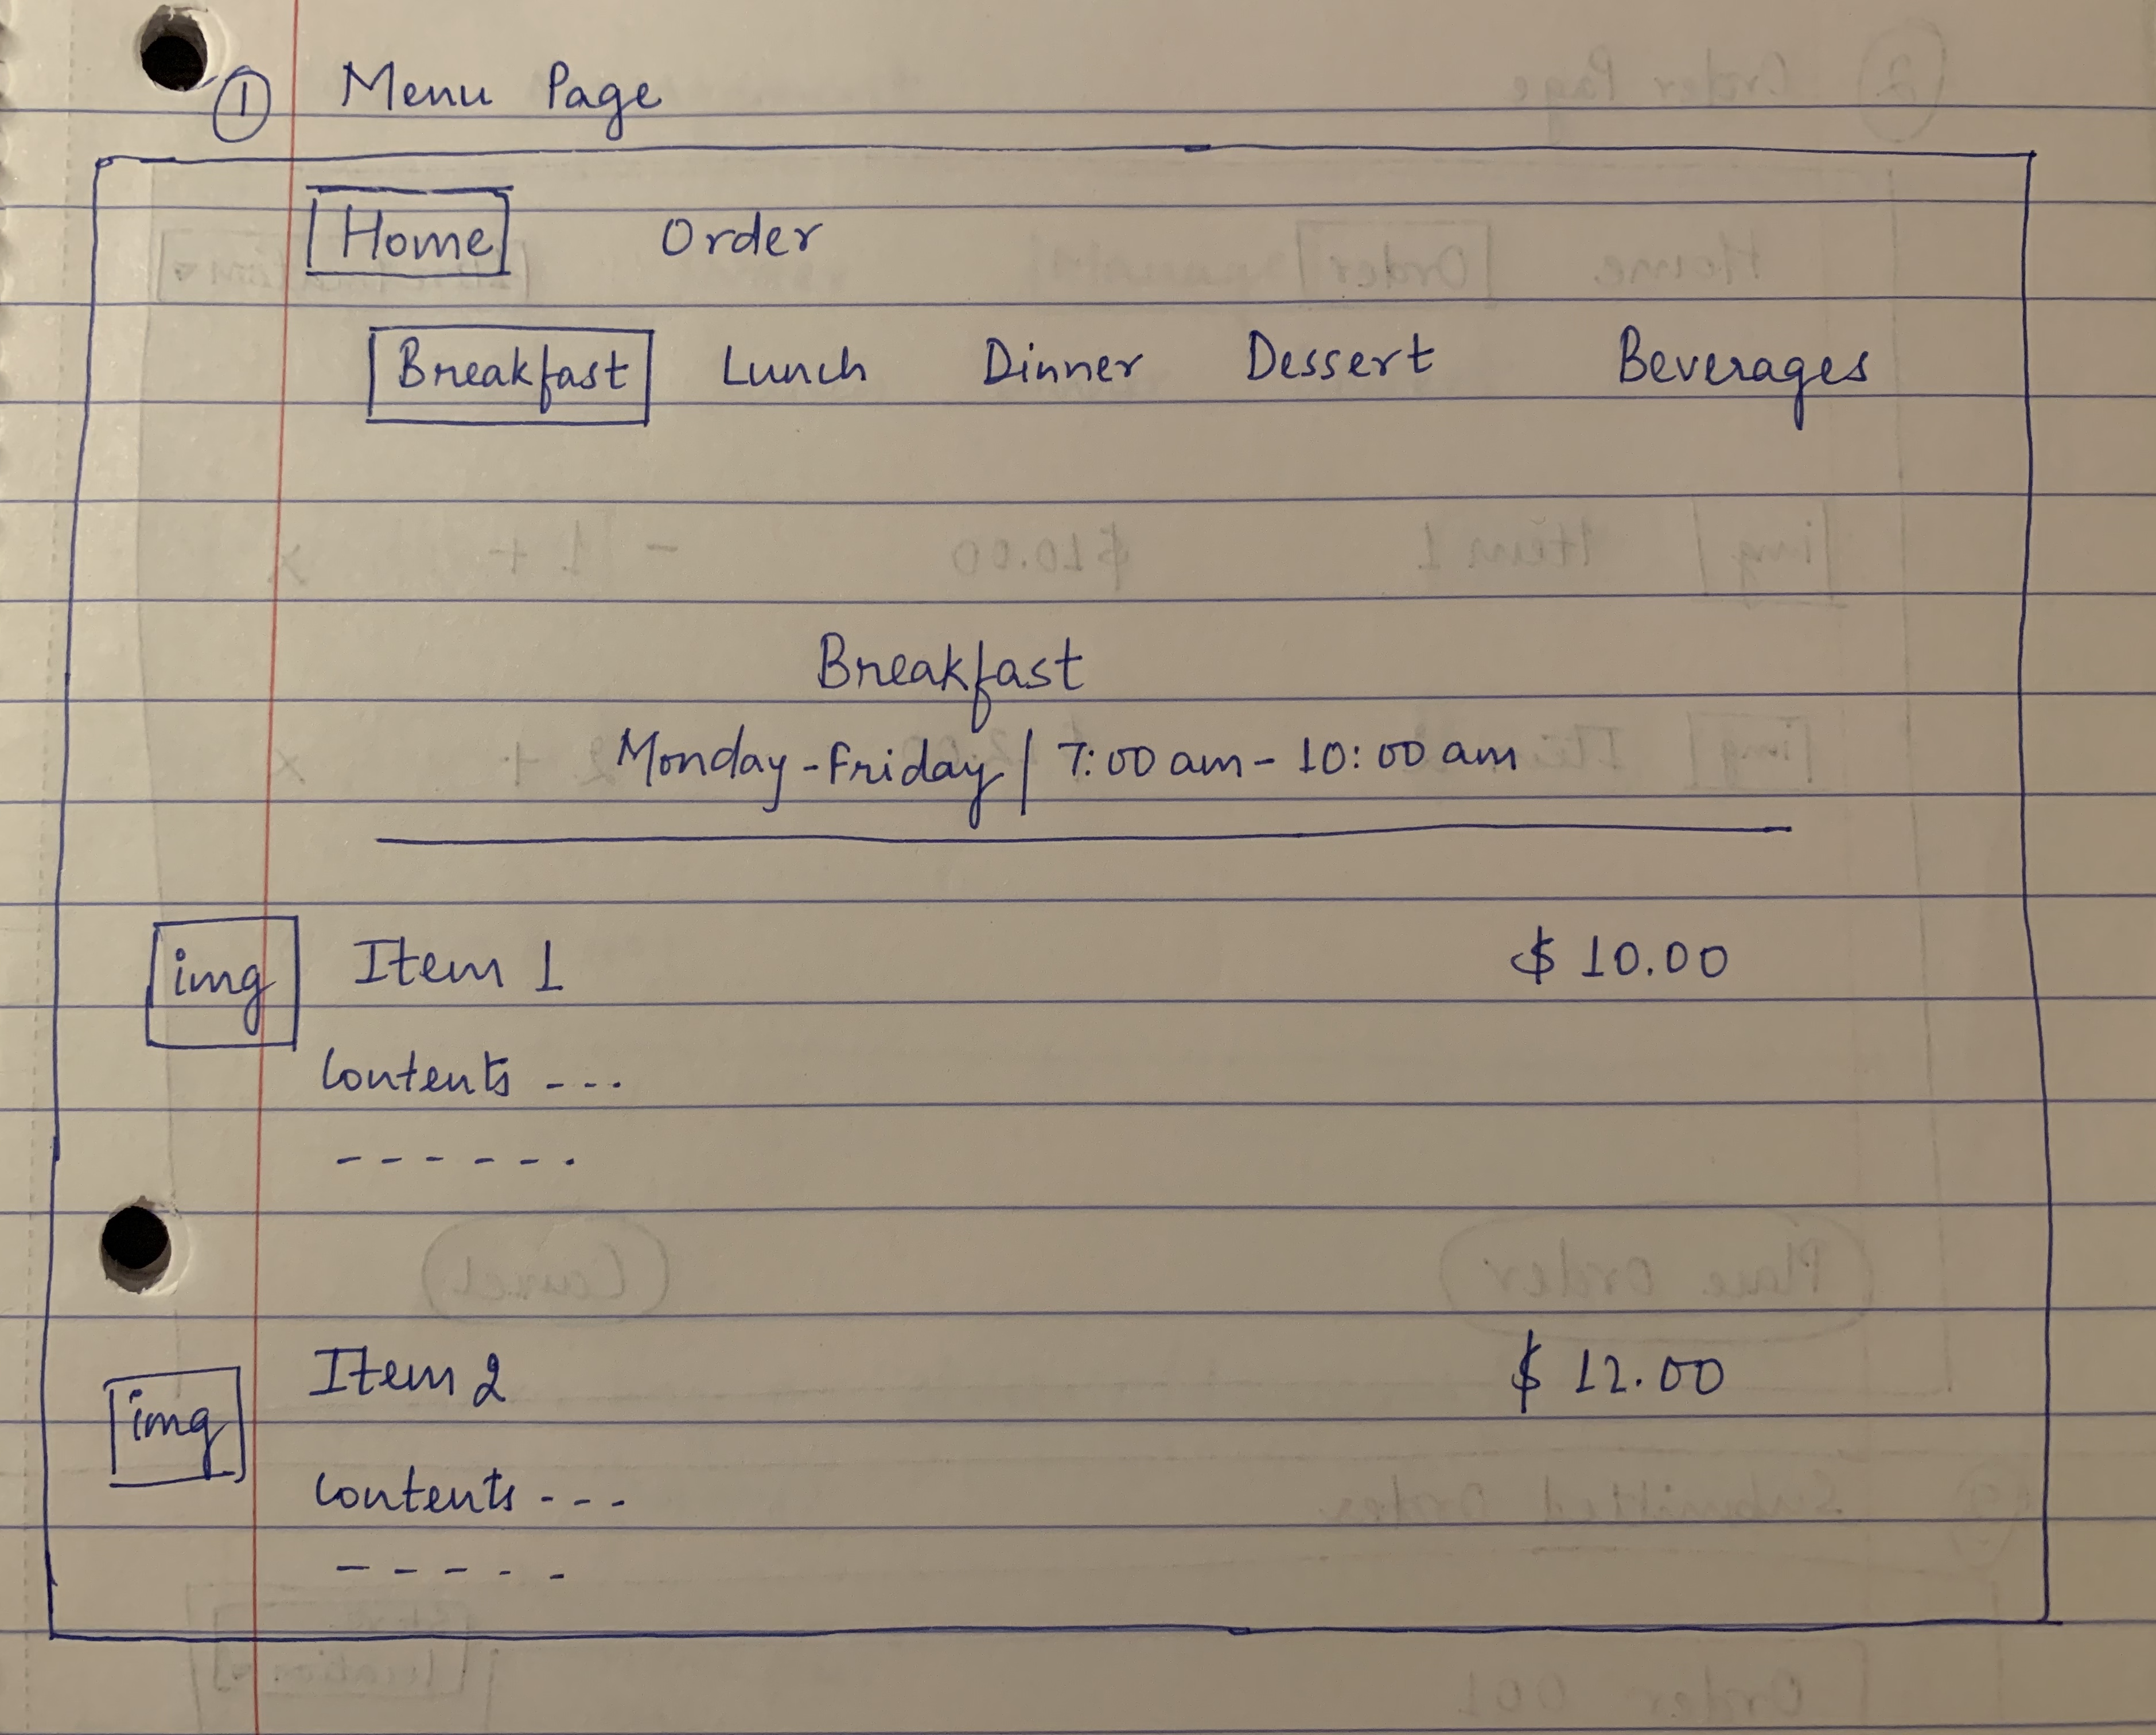 ① Menu Page
Home Order
Breakfast Lunch Dinner Dessert Beverages
Breakfast
Monday-Friday | 7:00 am - 10:00 am
img Item 1 $ 10.00
Contents ---
------
img Item 2 $ 12.00
Contents ---
-----